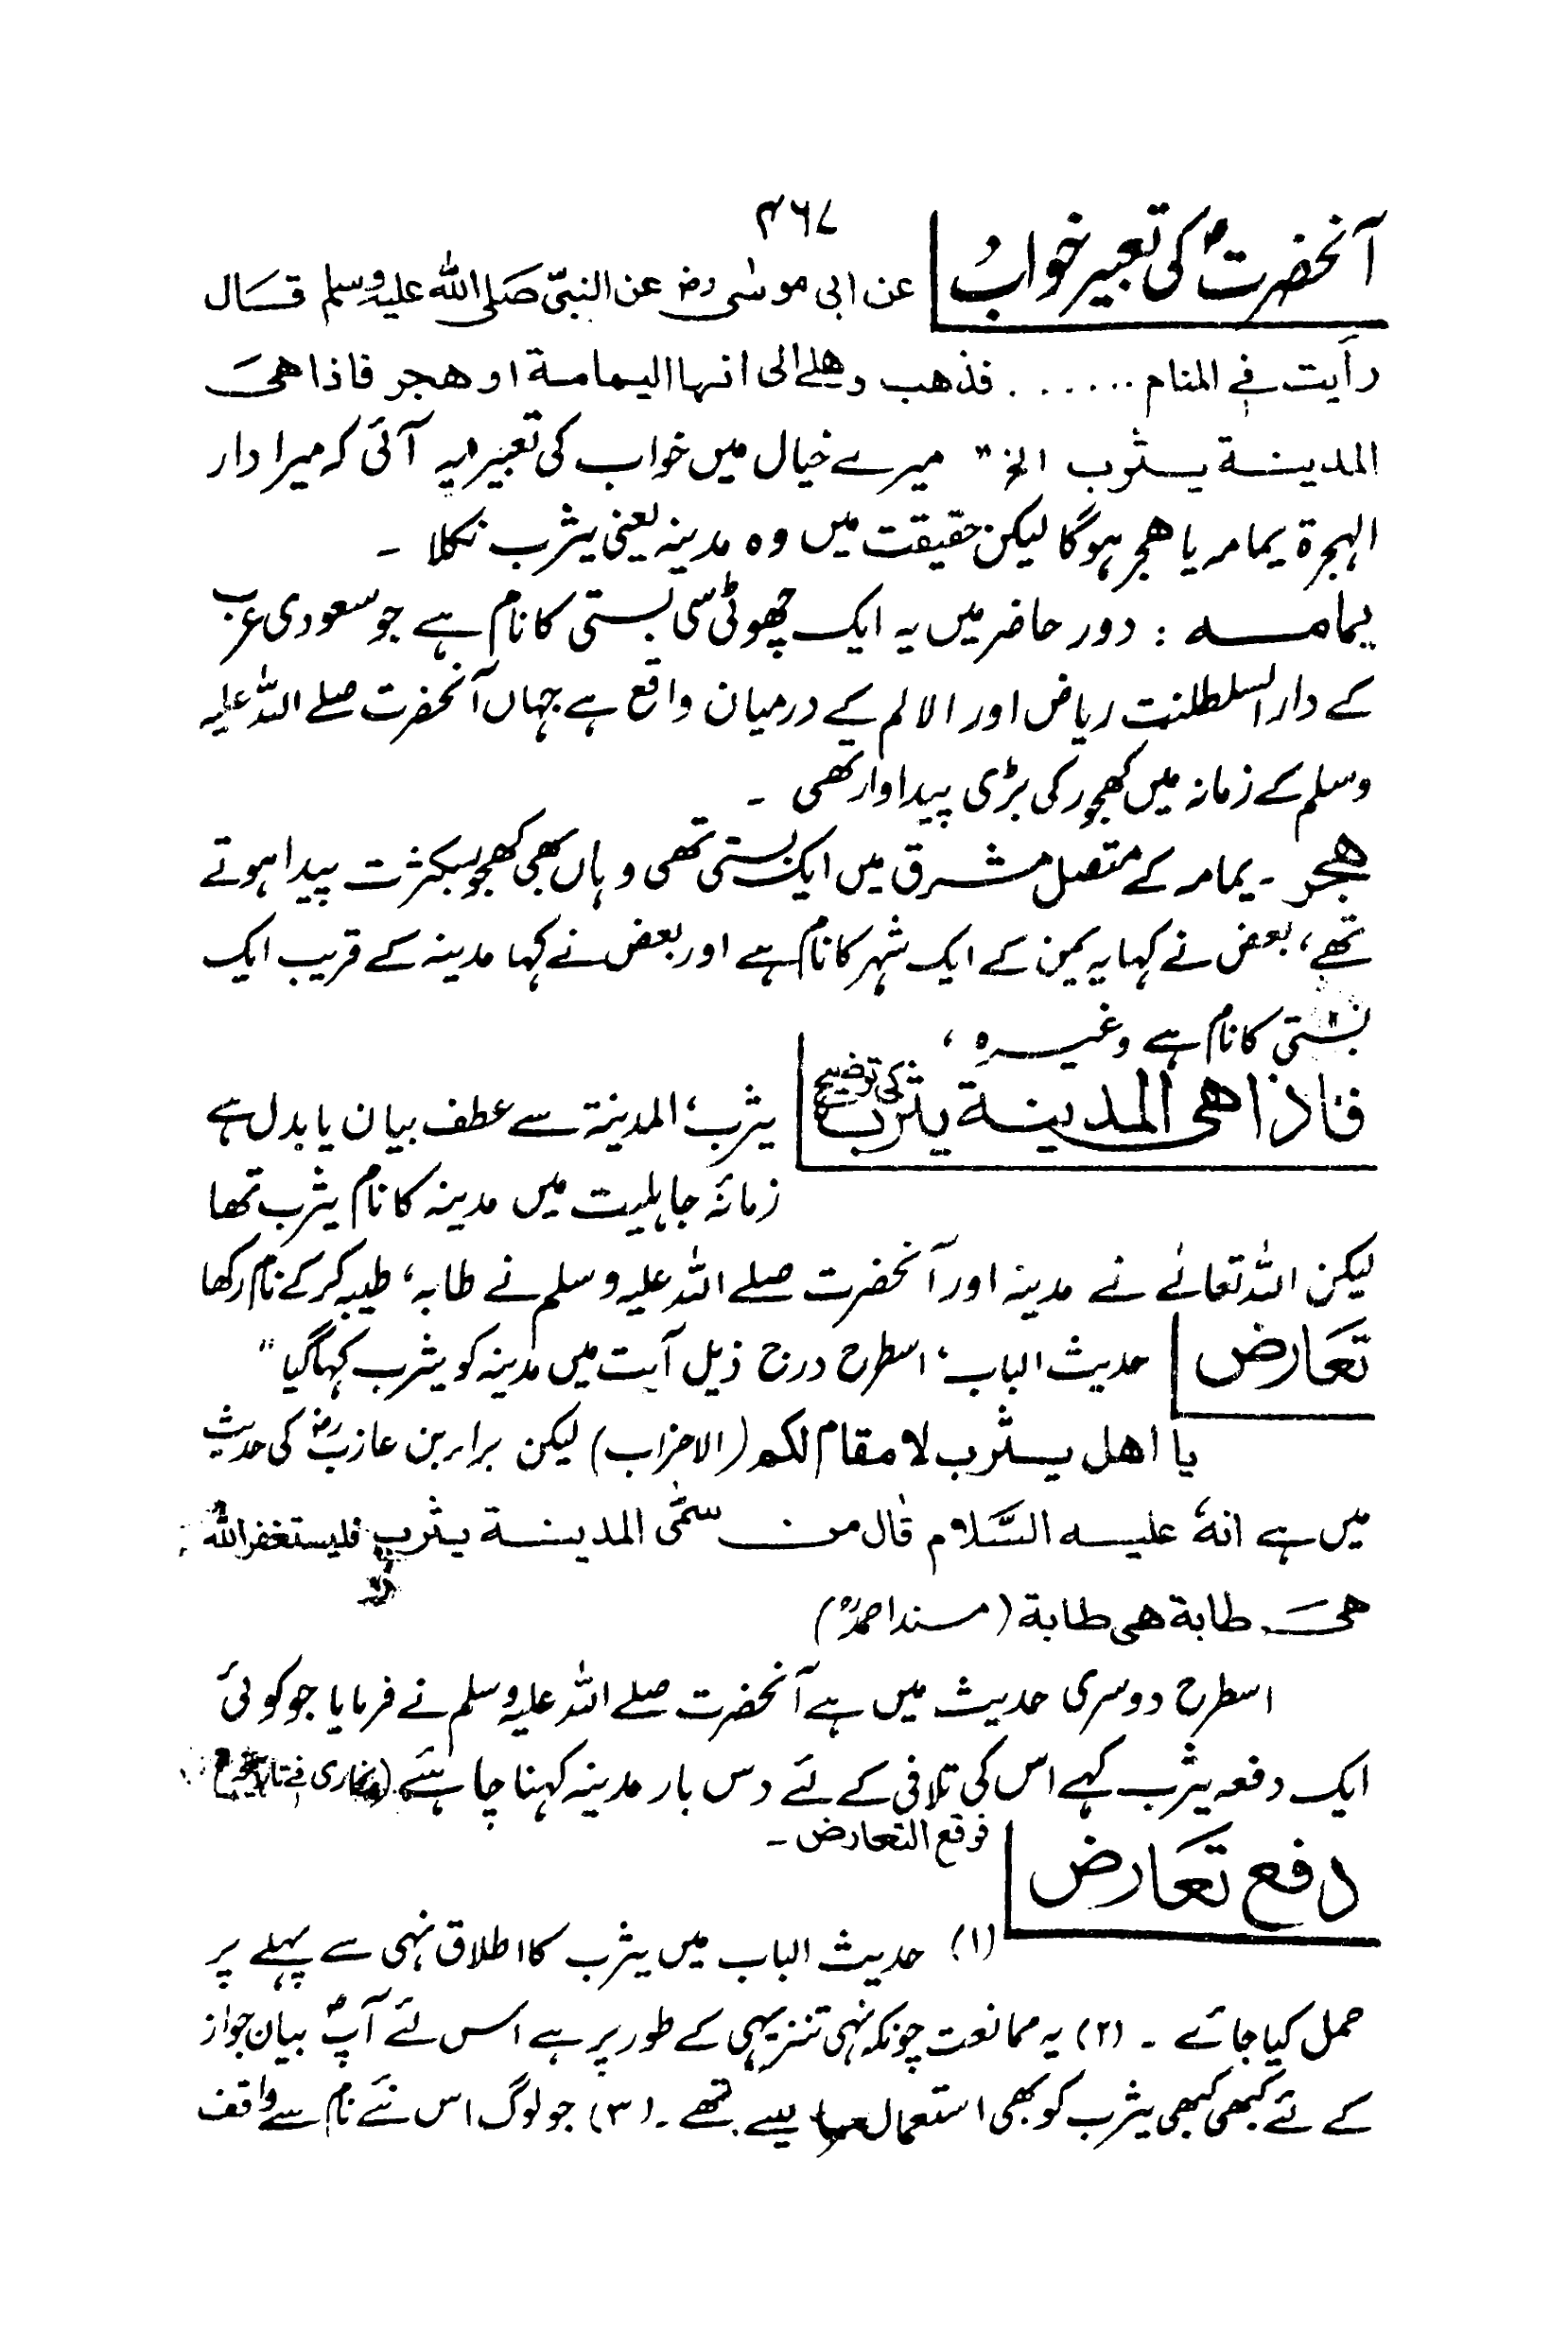 ۴۶۷
آنحضرتؐ کی تعبیر خواب
عن ابی موسٰی رضؓ عن النبیّ صَلی اللہ علیہ وسلم قَال
رأَیت فے المنام ...... فذهب وهلے الی انہا الیمامة او هجر فاذا هیَ
المدینة یثرب الخ" میرے خیال میں خواب کی تعبیر یہ آئی کہ میرا دار
الہجرۃ یمامہ یا ھجر ہوگا لیکن حقیقت میں وہ مدینہ یعنی یثرب نکلا ۔
یمامہ : دور حاضر میں یہ ایک چھوٹی سی بستی کا نام ہے جو سعودی عرب
کے دارالسلطنت ریاض اور الالم کے درمیان واقع ہے جہاں آنحضرت صلے اللہ علیہ
وسلم کے زمانہ میں کھجور کی بڑی پیداوار تھی ۔
ھجر ۔ یمامہ کے متصل مشرق میں ایک بستی تھی وہاں بھی کھجور بکثرت پیدا ہوتے
تھے، بعض نے کہا یہ یمن کے ایک شہر کا نام ہے اور بعض نے کہا مدینہ کے قریب ایک
بستی کا نام ہے وغیرہ ،
فاذا هی المدینة یثرب کی توضیح
یثرب، المدینۃ سے عطف بیان یا بدل ہے
زمانۂ جاہلیت میں مدینہ کا نام یثرب تھا
لیکن اللہ تعالےٰ نے مدینہ اور آنحضرت صلے اللہ علیہ وسلم نے طابہ، طیبہ کر کے نام رکھا
تَعَارض
حدیث الباب، اسطرح درج ذیل آیت میں مدینہ کو یثرب کہا گیا "
یا اهل یثرب لا مقام لکم (الاحزاب) لیکن براربن عازبؓ کی حدیث
میں ہے انہٗ علیہ السَّلام قال من سمّٰی المدینة یثرب فلیستغفر اللہ
هیَ طابة هی طابة (مسند احمدؒ)
اسطرح دوسری حدیث میں ہے آنحضرت صلے اللہ علیہ وسلم نے فرمایا جو کوئی
ایک دفعہ یثرب کہے اس کی تلافی کے لئے دس بار مدینہ کہنا چاہئے (بخاری فے تاریخہ)
فوقع التعارض ۔
دفع تعَارض
(۱) حدیث الباب میں یثرب کا اطلاق نہی سے پہلے پر
حمل کیا جائے ۔ (۲) یہ ممانعت چونکہ نہی تنزیہی کے طور پر ہے اس لئے آپؐ بیان جواز
کے لئے کبھی کبھی یثرب کو بھی استعمال تھے ۔ (۳) جو لوگ اس نئے نام سے واقف